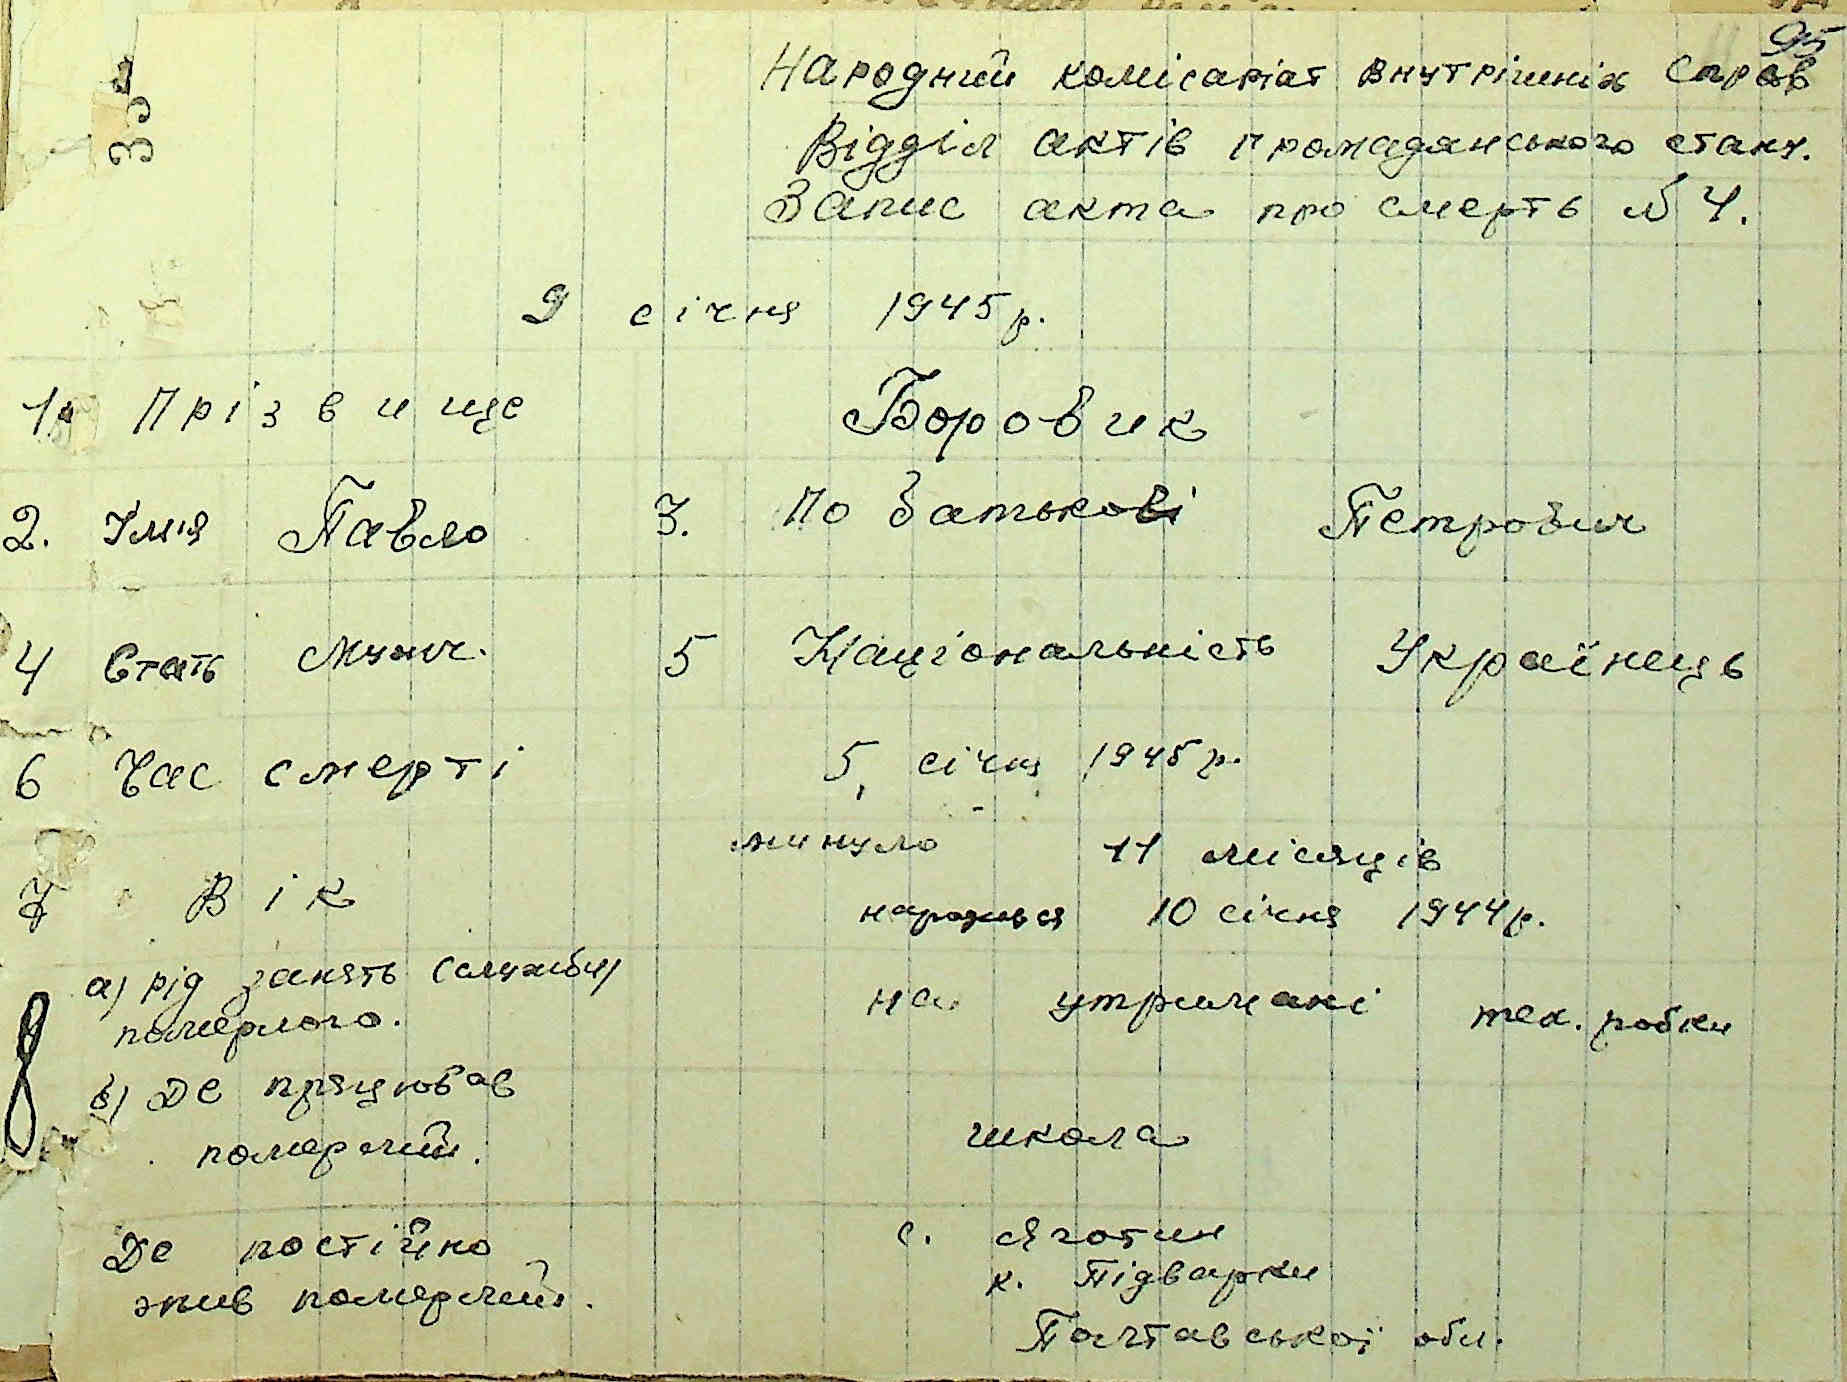 95
33
Народний комісаріат внутрішніх справ
Відділ актів громадянського стану.
Запис акта про смерть № 4.
9 січня 1945 р.
1. Прізвище Боровик
2. Імя Павло 3. По батькові Петрович
4 Стать мужч. 5 Національність Українець
6 Час смерті 5, січня 1945 р.
минуло 11 місяців
7 Вік народився 10 січня 1944 р.
а) рід занять (служби) на утримані тех. робки
померлого.
в) Де працював
померлий. школа
Де постійно с. Яготин
жив померлий. к. Підварки
Полтавської обл.
8